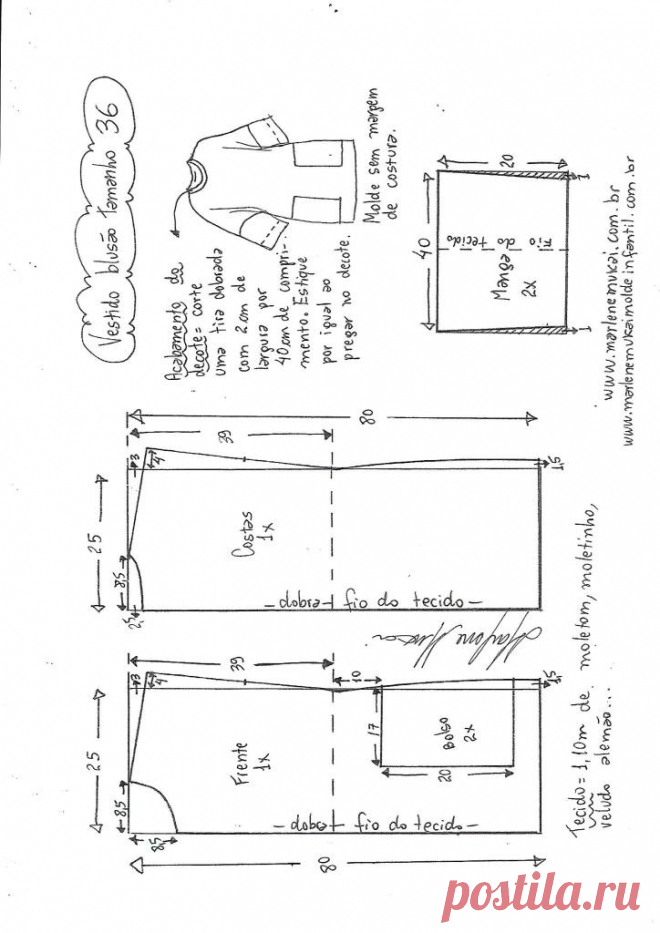 Vestido blusão Tamanho 36
Acabamento do
decote = corte
uma tira dobrada
com 2 cm de
largura por
40 cm de compri-
mento. Estique
por igual ao
pregar no decote.
Molde sem margem
de costura.
40
20
Manga
2x
fio do tecido
1
1
www.marlenemukai.com.br
www.marlenemukaimoldeinfantil.com.br
25
8,5
2,5
3
4
39
80
Costas
1x
-dobra+ fio do tecido-
1,5
25
8,5
8,5
3
4
39
80
Frente
1x
-dobra+ fio do tecido-
10
17
20
Bolso
2x
1,5
Tecido = 1,10m de moletom, moletinho,
veludo alemão...
postila.ru